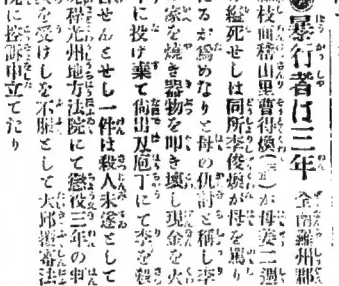 暴行者は三年
全南羅州郡
枝面稽山里曹得煥(三五)が母姜二週
縊死せしは同所李俊燮が母を罵り
たるが爲めなりと母の仇討と稱し李
の家を燒き器物を叩き壞し現金を火
中に投げ棄て尙出刃庖丁にて李を殺
害せんとせし一件は殺人未遂として
程光州地方法院にて懲役三年の判
決を受けしを不服として大邱覆審法
院に控訴申立てたり